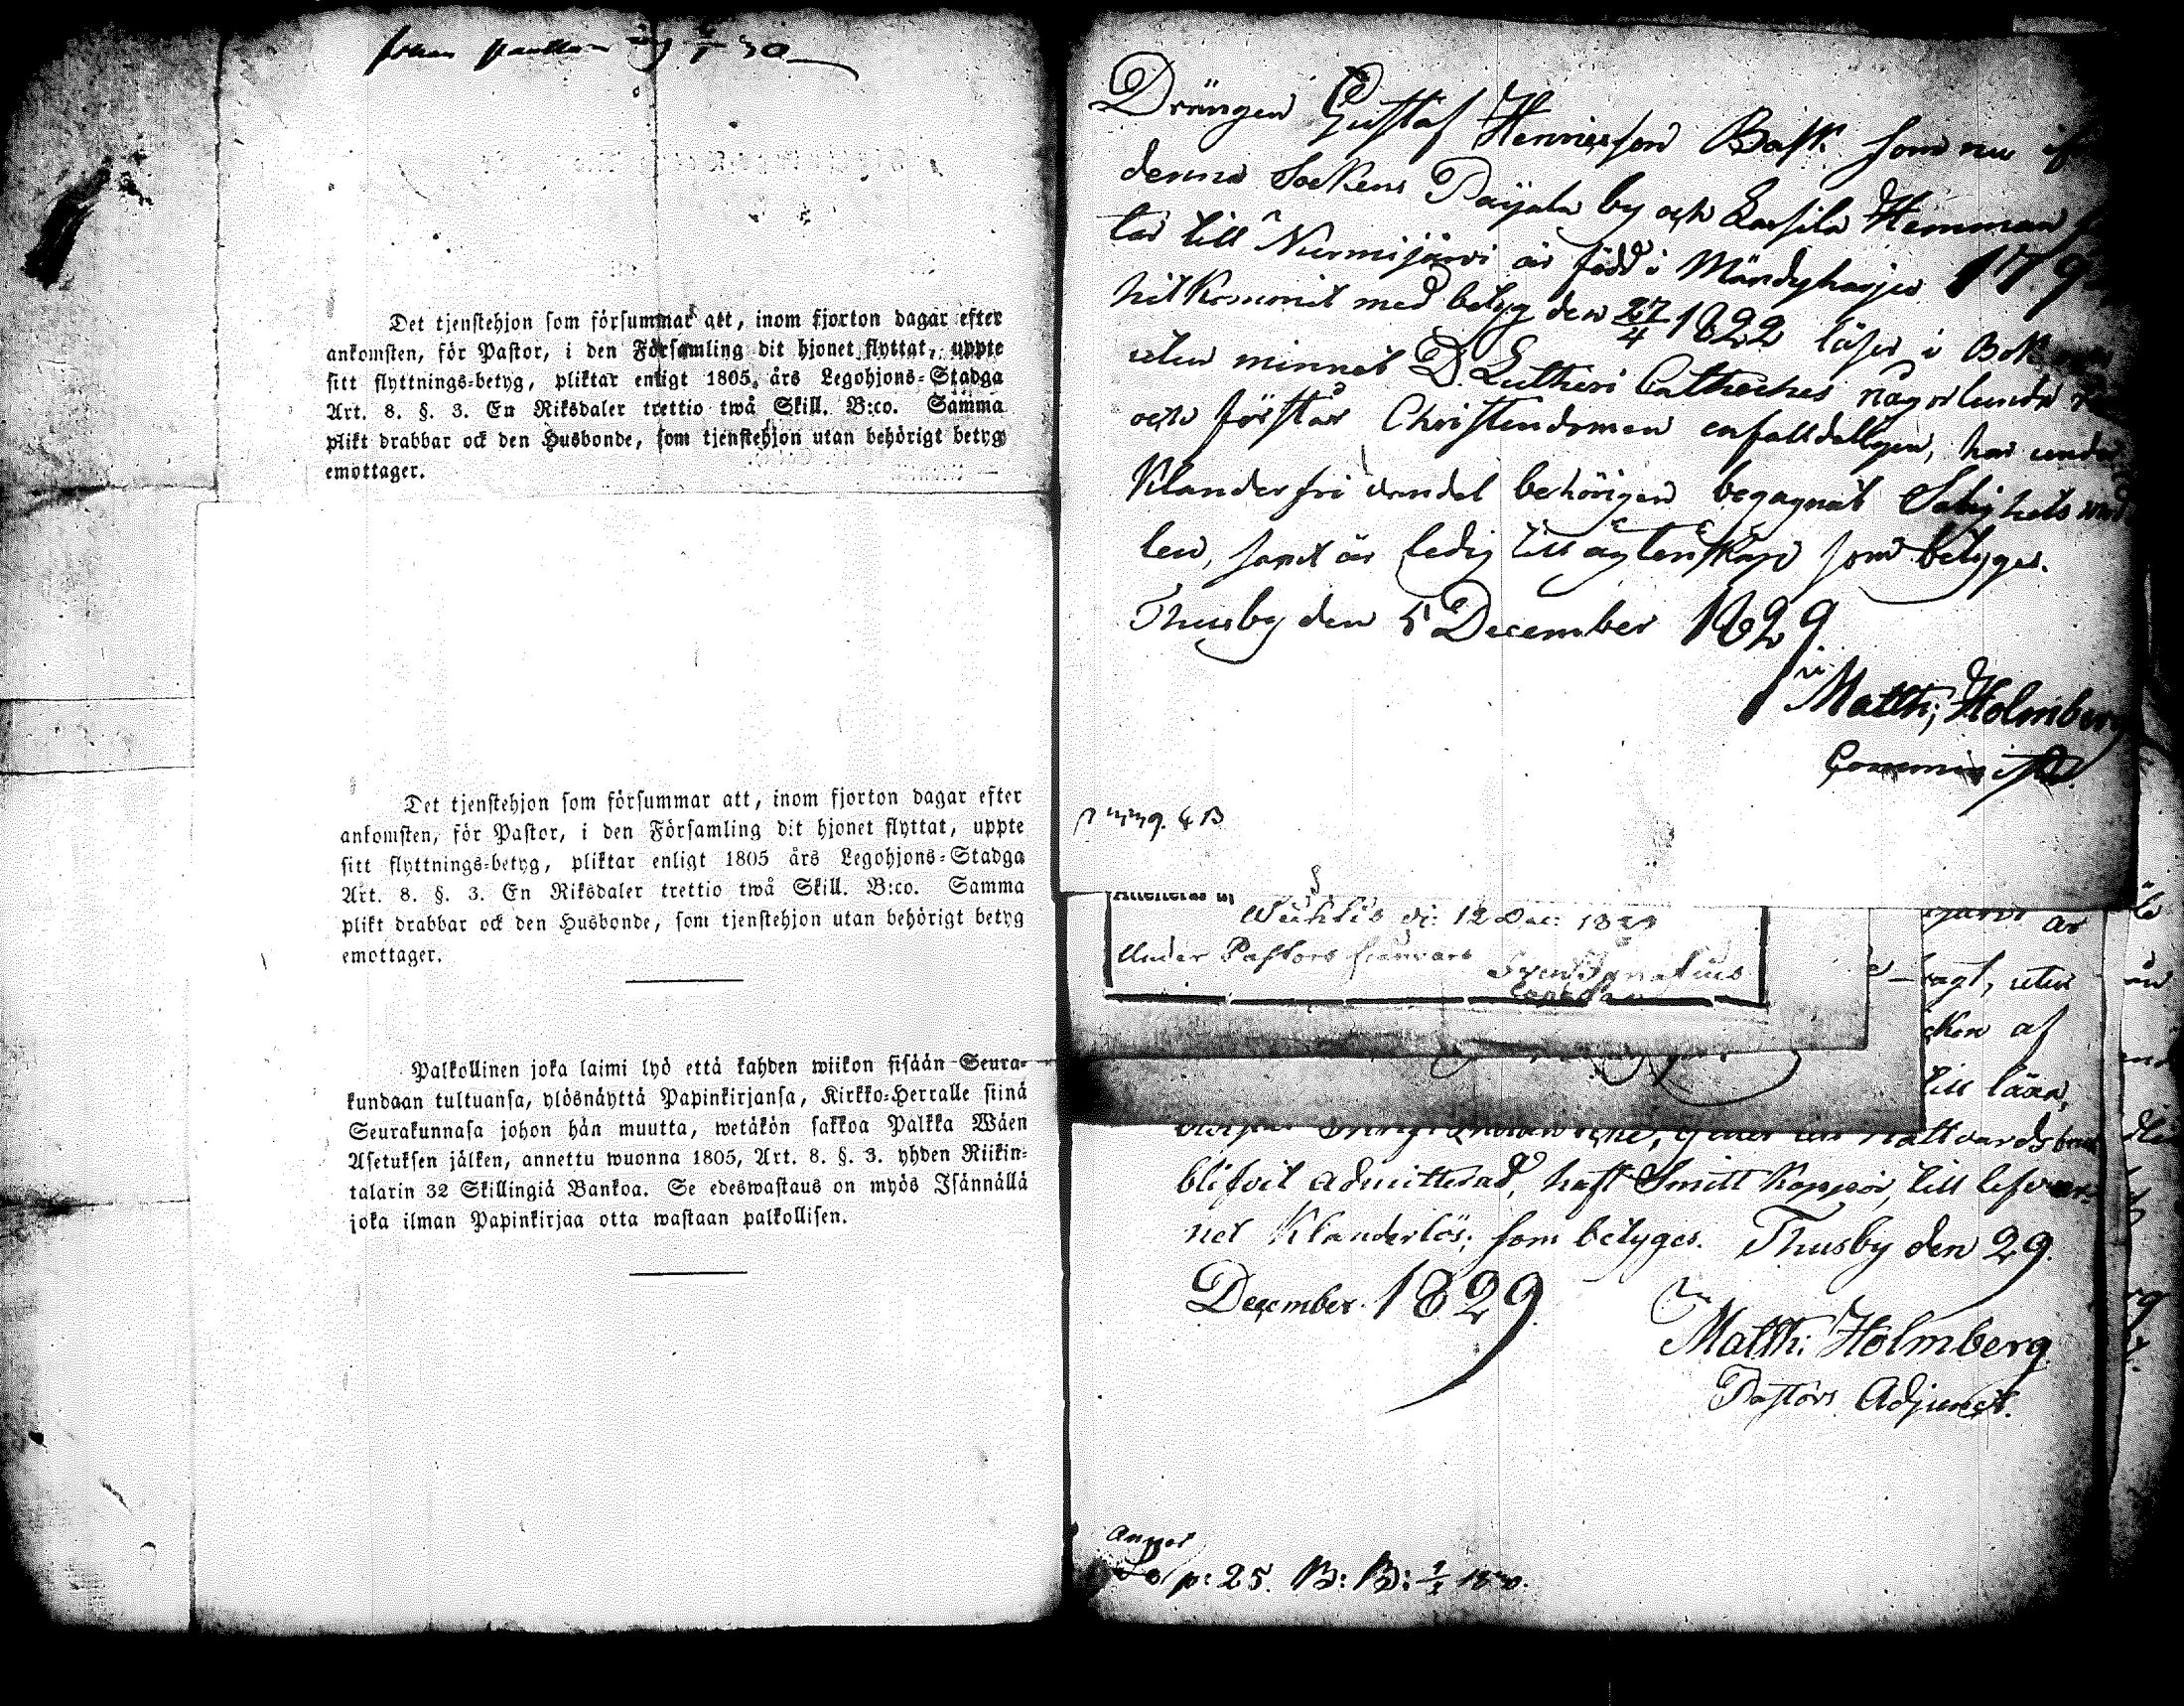 Det tjenstehjon som försummar att, inom fjorton dagar efter
ankomsten, för Pastor, i den Församling dit hjonet flyttat, uppte
sitt flyttnings-betyg, pliktar enligt 1805 års Legohjons-Stadga
Art. 8. §. 3. En Riksdaler trettio twå Skill. B:co. Samma
plikt drabbar ock den Husbonde, som tjenstehjon utan behörigt betyg
emottager.
Det tjenstehjon som försummar att, inom fjorton dagar efter
ankomsten, för Pastor, i den Församling dit hjonet flyttat, uppte
sitt flyttnings-betyg, pliktar enligt 1805 års Legohjons-Stadga
Art. 8. §. 3. En Riksdaler trettio twå Skill. B:co. Samma
plikt drabbar ock den Husbonde, som tjenstehjon utan behörigt betyg
emottager.
Palkollinen joka laimi lyö että kahden wiikon sisään Seura-
kundaan tultuansa, ylösnäyttä Papinkirjansa, Kirkko-Herralle siinä
Seurakunnasa johon hän muutta, wetäkön sakkoa Palkka Wäen
Asetuksen jälken, annettu wuonna 1805, Art. 8. §. 3. yhden Riikin-
talarin 32 Skillingiä Bankoa. Se edeswastaus on myös Isännällä
joka ilman Papinkirjaa otta wastaan palkollisen.
Drängen Gustaf Henricsson Bask som nu
denna Sockens Paijala by och Hemman
tar till Nurmijärvi är född i Mändyharju 179
hitkommit med betyg den 27/4 1822 läser i Bok
utur minnet D. Lutheri Catheches någorlunda
och förstår Christendomen enfalldeligen, har under
Klanderfri vandel behörigen begagnat Salighets med
len, samt är ledig till ägtenskap som betyges.
Thusby den 5 December 1829
Matth; Holmberg
Attesteras
Wichtis d: 12 Dec: 1829
Under Pastors frånvaro
är
ragt, utur
cken af
till lära,
nattvards
blifvit admitterad, haft Smitt Koppor, till lefver
net Klanderlös; som betyges. Thusby den 29.
December 1829
Matth: Holmberg
Pastors Adjunct.
p: 25. B: B: